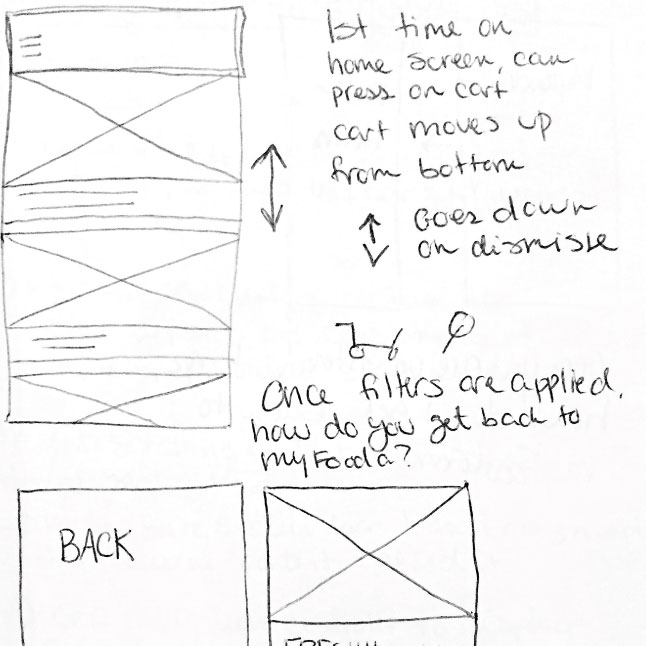 1st time on
home screen, can
press on cart
cart moves up
from bottom
Goes down
on dismisse
Once filters are applied,
how do you get back to
myFooda?
BACK